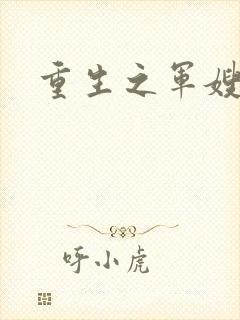 重生之军嫂
呼小虎